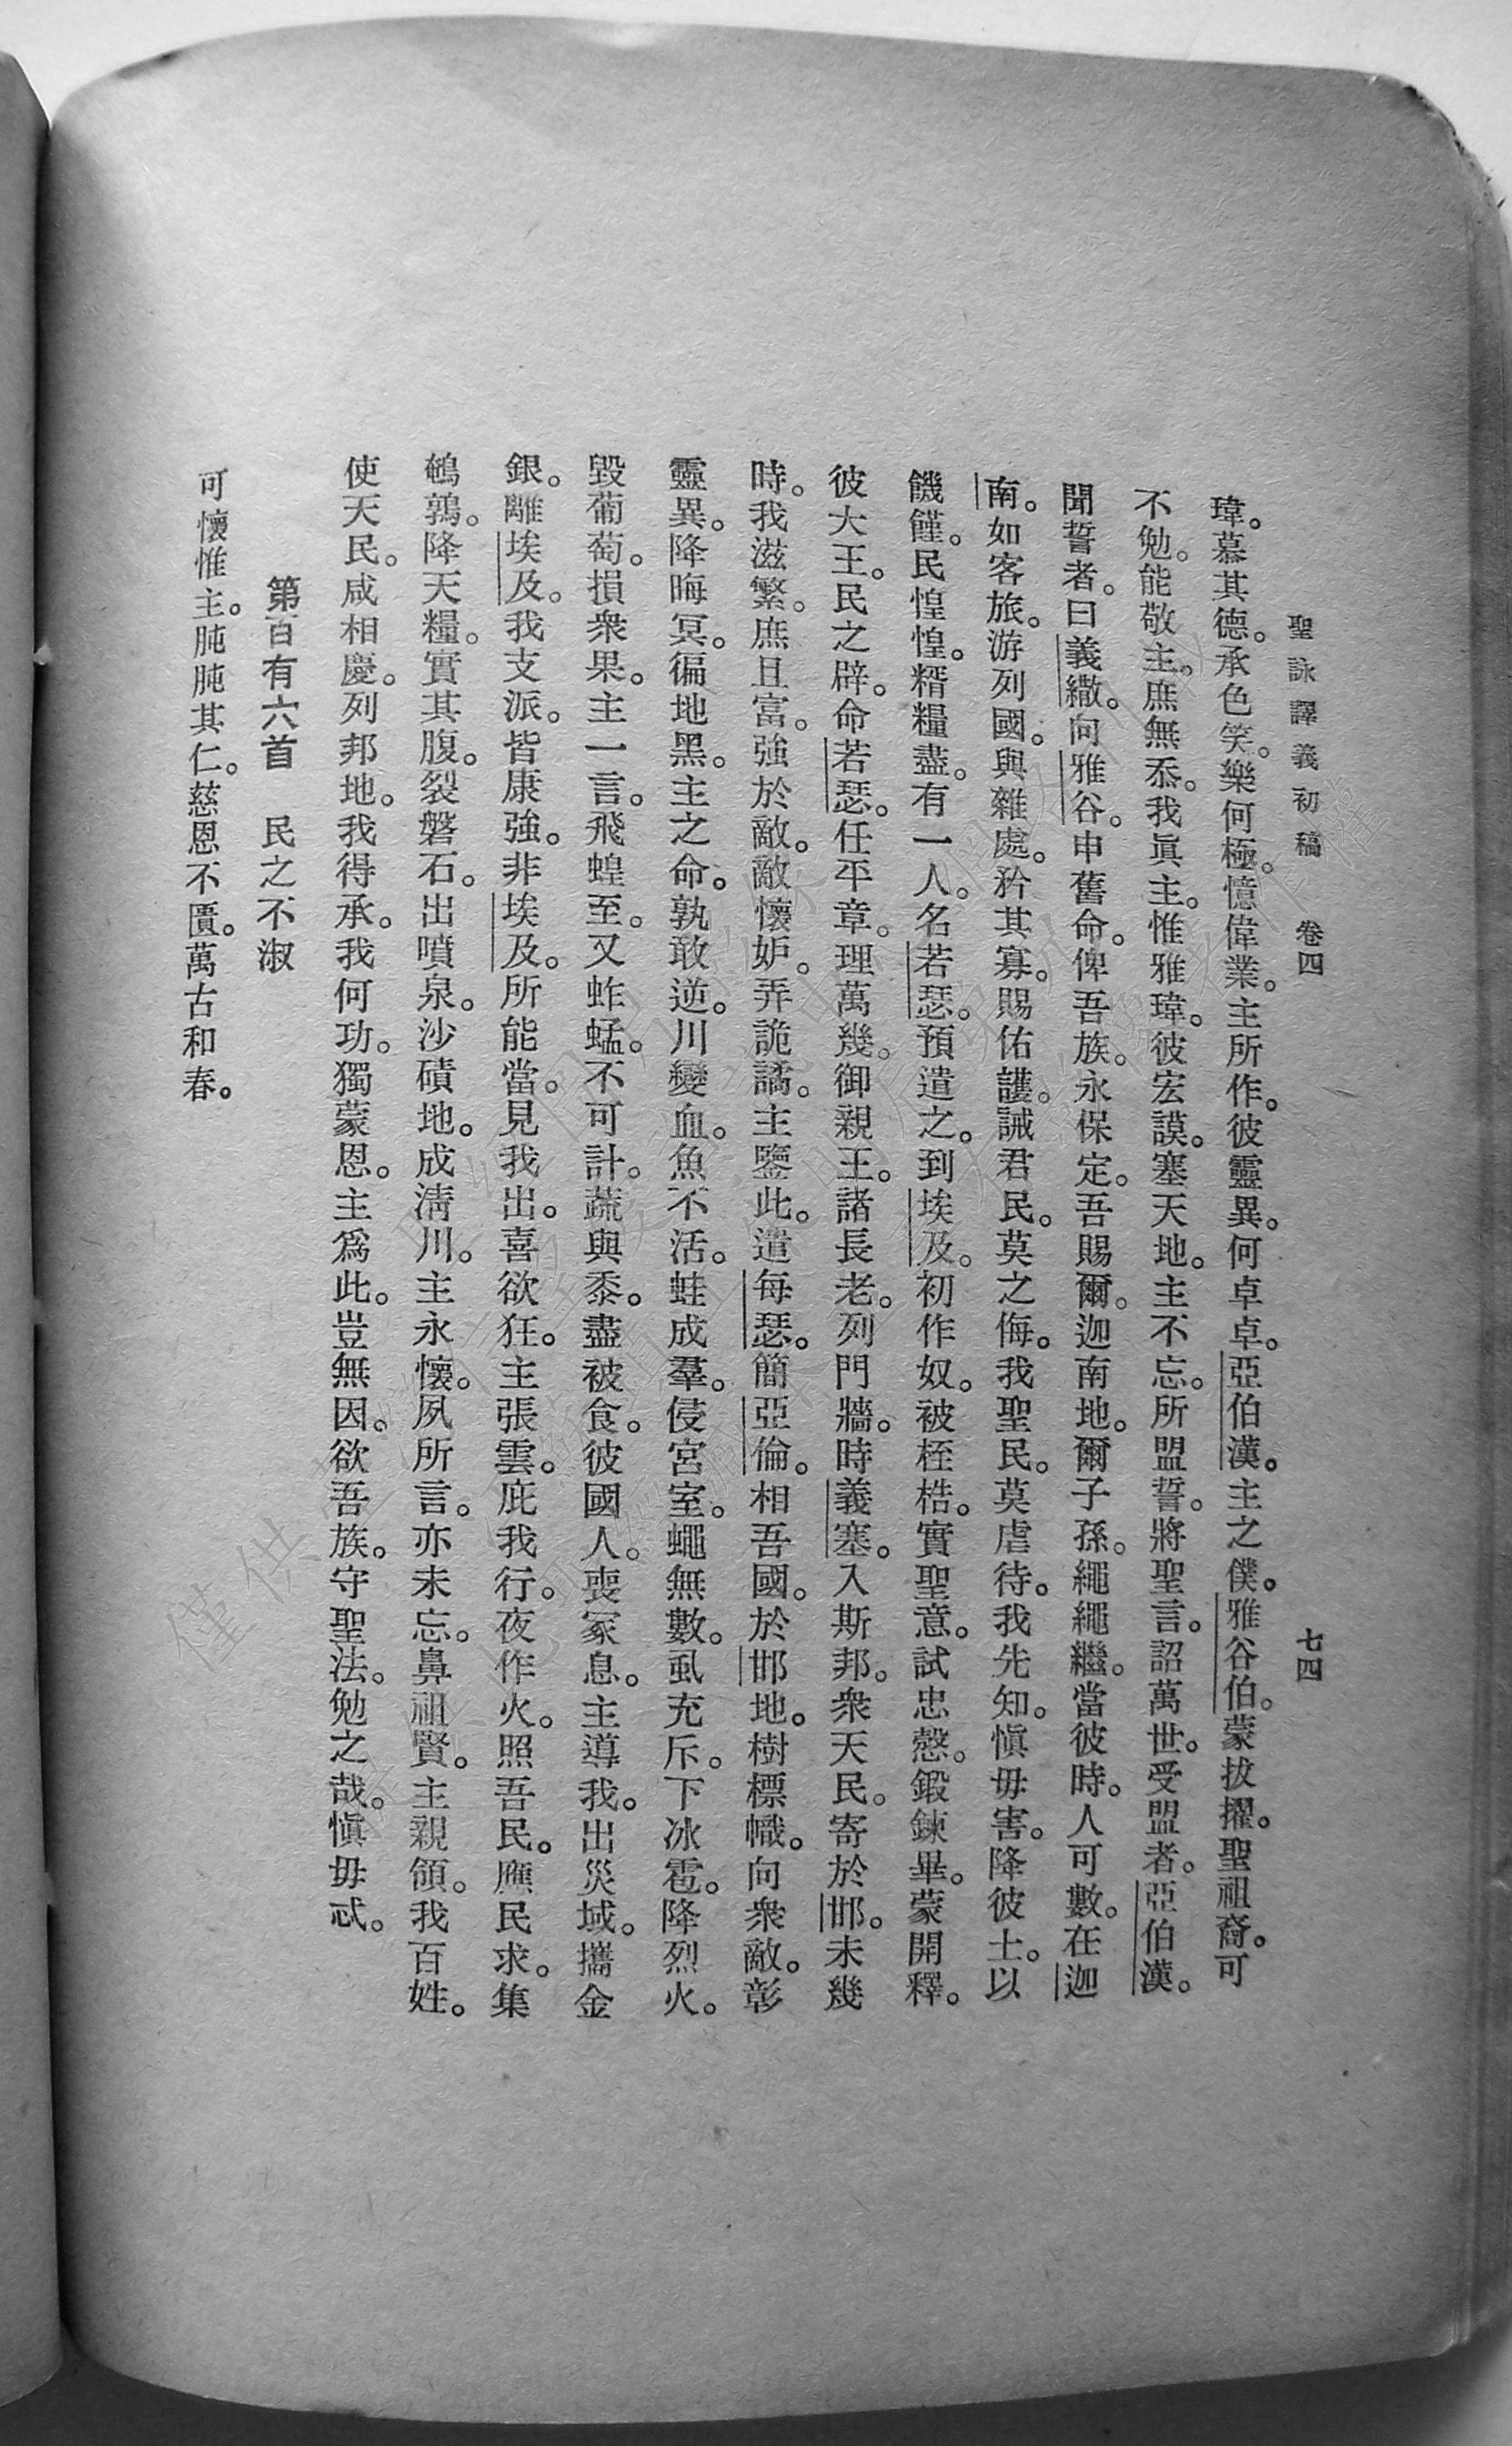 聖詠譯義初稿　卷四　七四
瑋。慕其德。承色笑。樂何極。憶偉業。主所作。彼靈異。何卓卓。亞伯漢。主之僕。雅谷伯。蒙拔擢。聖祖裔。可
不勉。能敬主。庶無忝。我眞主。惟雅瑋。彼宏謨。塞天地。主不忘。所盟誓。將聖言。詔萬世。受盟者。亞伯漢。
聞誓者。曰義繖。向雅谷。申舊命。俾吾族。永保定。吾賜爾。迦南地。爾子孫。繩繩繼。當彼時。人可數。在迦
南。如客旅。游列國。與雜處。矜其寡。賜佑護。誡君民。莫之侮。我聖民。莫虐待。我先知。愼毋害。降彼土。以
饑饉。民惶惶。糈糧盡。有一人。名若瑟。預遣之。到埃及。初作奴。被桎梏。實聖意。試忠慤。鍛鍊畢。蒙開釋。
彼大王。民之辟。命若瑟。任平章。理萬幾。御親王。諸長老。列門牆。時義塞。入斯邦。衆天民。寄於邯。未幾
時。我滋繁。庶且富。強於敵。敵懷妒。弄詭譎。主鑒此。遣每瑟。簡亞倫。相吾國。於邯地。樹標幟。向衆敵。彰
靈異。降晦冥。徧地黑。主之命。孰敢逆。川變血。魚不活。蛙成羣。侵宮室。蠅無數。虱充斥。下冰雹。降烈火。
毀葡萄。損衆果。主一言。飛蝗至。又蚱蜢。不可計。蔬與黍。盡被食。彼國人。喪冢息。主導我。出災域。攜金
銀。離埃及。我支派。皆康強。非埃及。所能當。見我出。喜欲狂。主張雲。庇我行。夜作火。照吾民。應民求。集
鵪鶉。降天糧。實其腹。裂磐石。出噴泉。沙磧地。成淸川。主永懷。夙所言。亦未忘。鼻祖賢。主親領。我百姓。
使天民。咸相慶。列邦地。我得承。我何功。獨蒙恩。主爲此。豈無因。欲吾族。守聖法。勉之哉。愼毋忒。
第百有六首　民之不淑
可懷惟主。肫肫其仁。慈恩不匱。萬古和春。